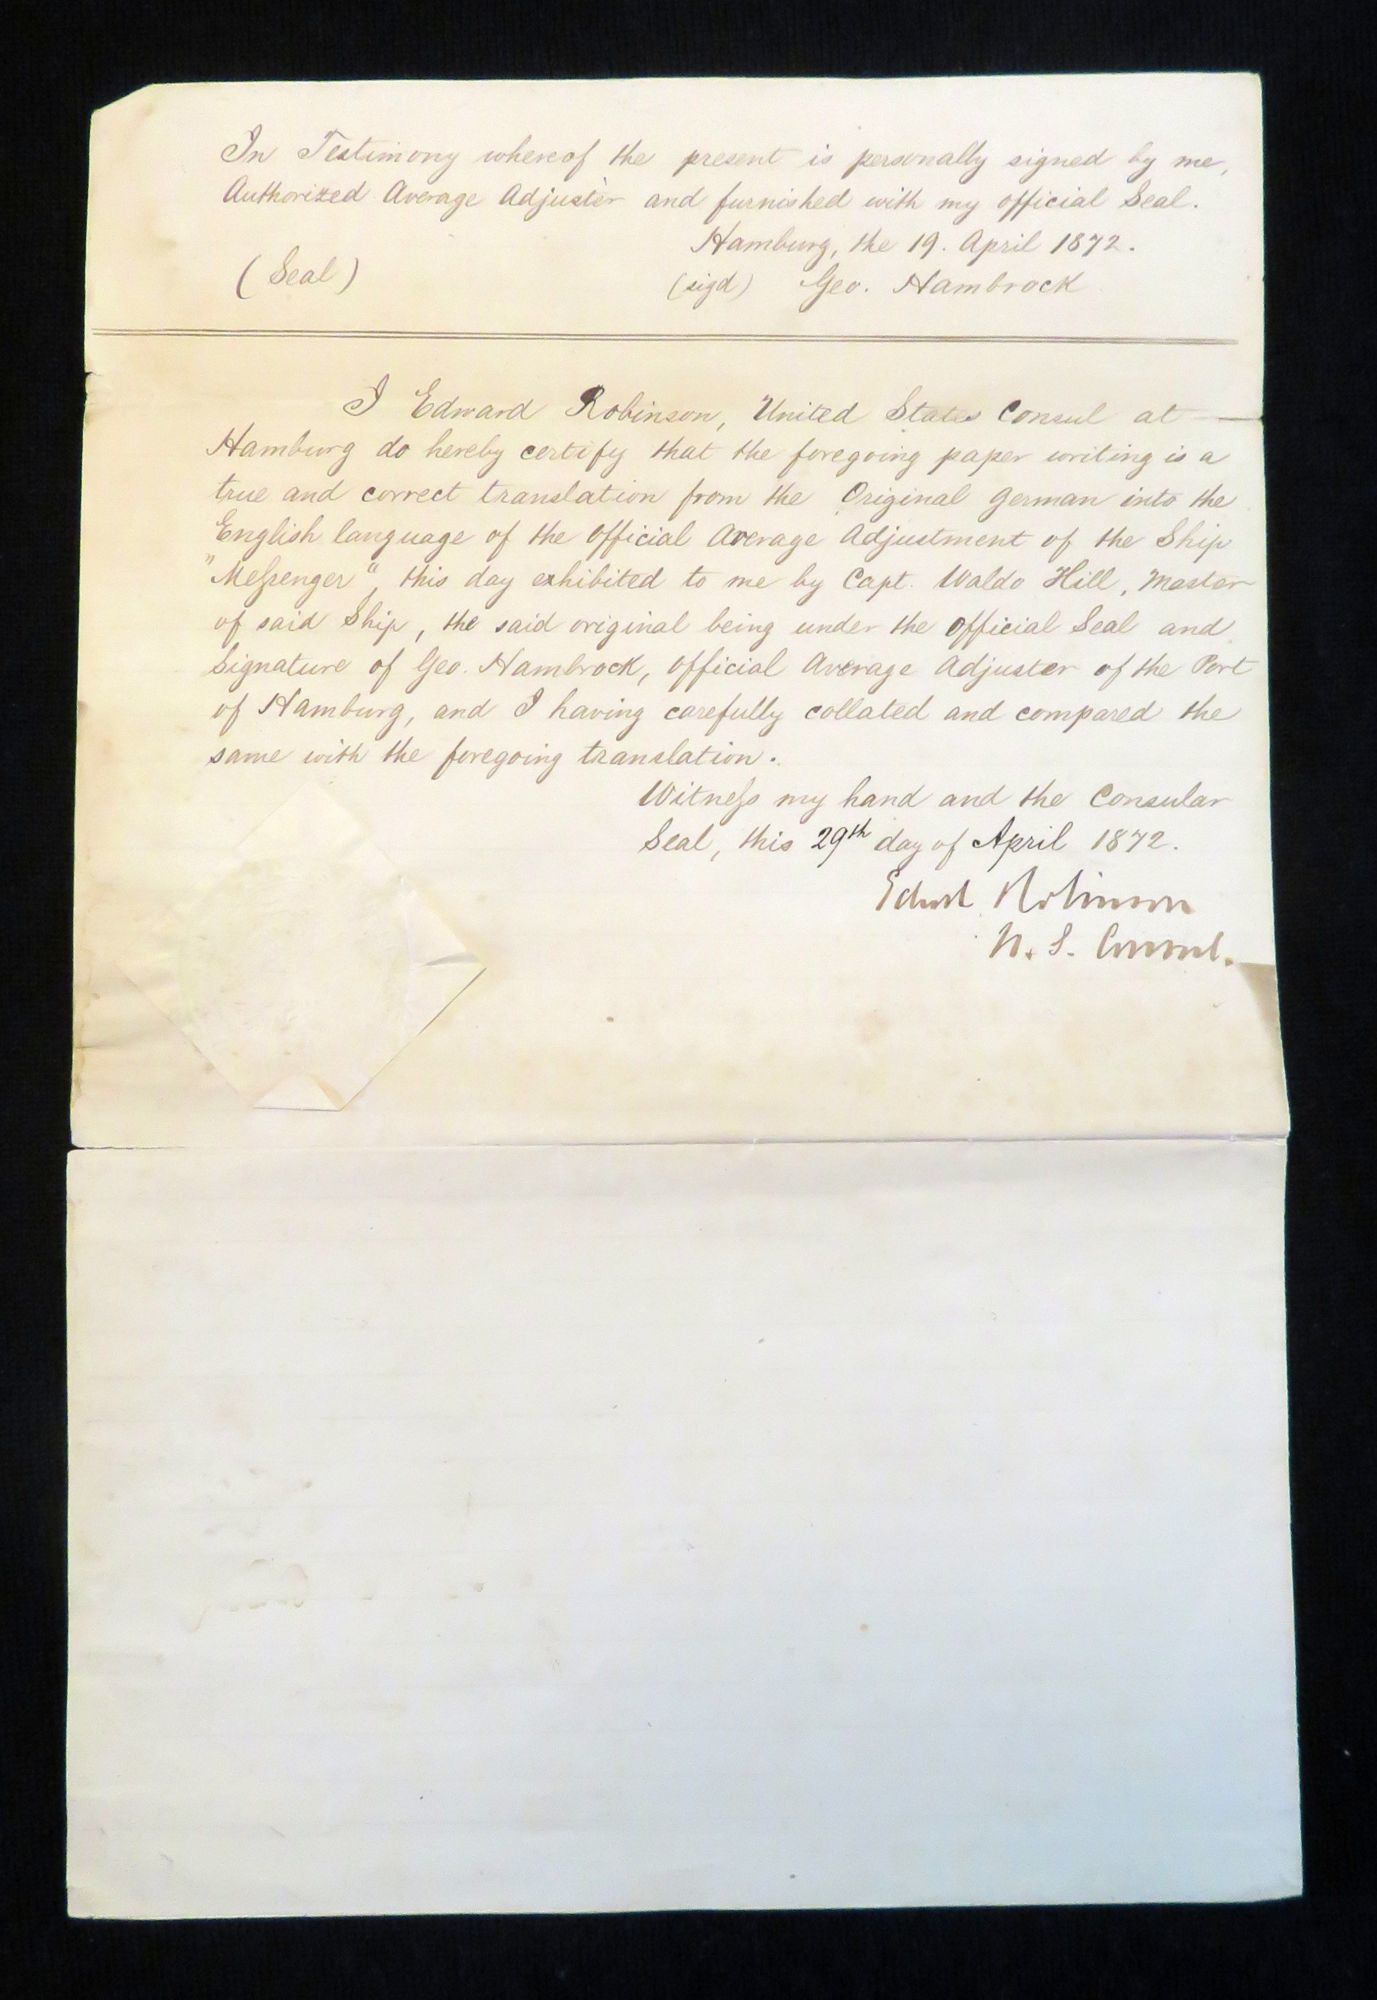 In Testimony whereof the present is personally signed by me,
Authorized Average Adjuster and furnished with my official Seal.
Hamburg, the 19. April 1872.
(Seal) (sigd) Geo. Hambrock
I Edward Robinson, United States Consul at —
Hamburg do hereby certify that the foregoing paper writing is a
true and correct translation from the Original German into the
English language of the Official Average Adjustment of the Ship
"Meſsenger" this day exhibited to me by Capt. Waldo Hill, Master
of said Ship, the said original being under the official Seal and
Signature of Geo. Hambrock, Official Average Adjuster of the Port
of Hamburg, and I having carefully collated and compared the
same with the foregoing translation.
Witneſs my hand and the Consular
Seal, this 29th day of April 1872.
Edwd Robinson
U. S. Consul.